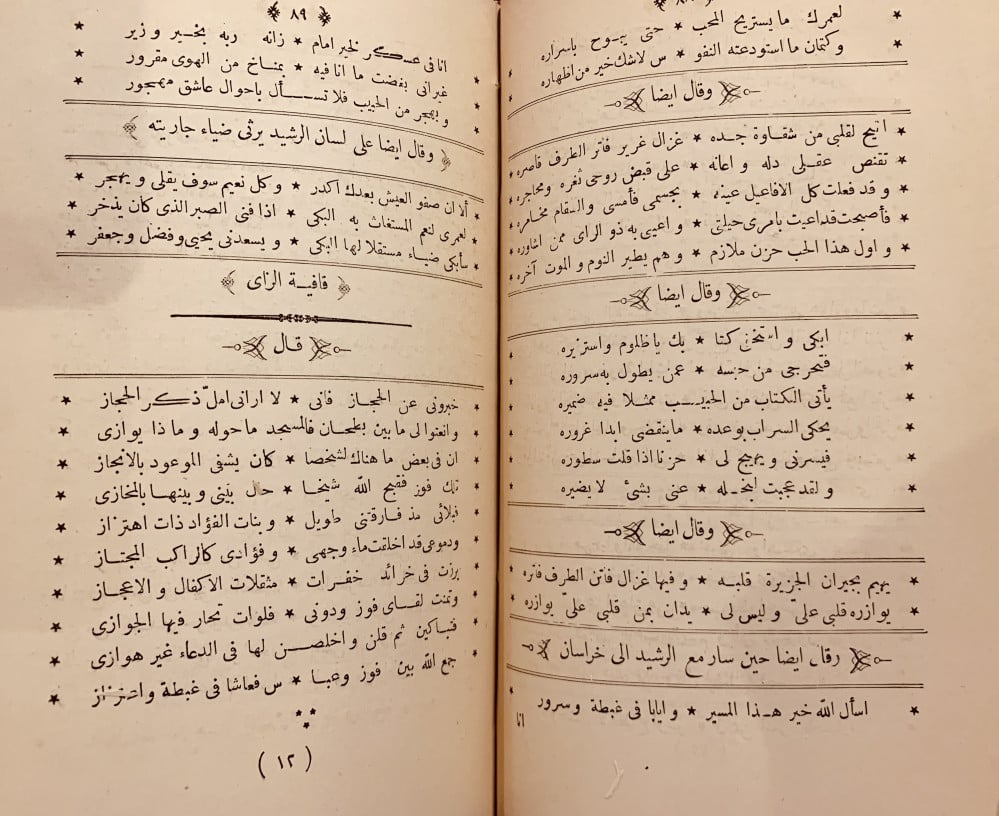 ٨٨
لعمرك ما يستريح المحب * حتى يبوح باسراره
وكتمان ما استودعته النفو * س لاشك خير من اظهاره
وقال ايضا
اتيح لقلبي من شقاوة جده * غزال غرير فاتر الطرف قاصره
تقنص عقلى دله واعانه * على قبض روحى ثغره ومحاجره
وقد فعلت كل الافاعيل عينه * بجسمى فأمسى والسقام مخامره
فأصبحت قد اعيت بامرى حيلتى * واعيى به ذو الراى ممن اشاوره
واول هذا الحب حزن ملازم * وهم يطير النوم والموت آخره
وقال ايضا
ابكى و كتا * بك يا ظلوم واستزيره
فتحرجى من حبسه * عمن يطول به سروره
يأتى الكتاب من الحبيب ممثلا فيه ضميره
يحكى السراب بوعده * ما ينقضى ابدا غروره
فيسرنى ويهيج لى * حزنا اذا قلت سطوره
ولقد عجبت لبخله * عنى بشئ لا يضيره
وقال ايضا
يهيم بجيران الجزيرة قلبه * وفيها غزال فاتن الطرف فاتره
يوازره قلبى علىّ وليس لى * يدان بمن قلبى علىّ يوازره
وقال ايضا حين سار مع الرشيد الى خراسان
اسأل الله خير هذا المسير * وايابا فى غبطة وسرور
انا
٨٩
انا فى عسكر لخير امام * زانه ربه بخير وزير
غيرانى بغضت ما انا فيه * بمناخ من الهوى مقرور
وبهجر من الحبيب فلا تسأل باحوال عاشق مهجور
وقال ايضا على لسان الرشيد يرثى ضياء جاريته
ألا ان صفو العيش بعدك اكدر * وكل نعيم سوف يقلى ويهجر
لعمرى لنعم المستغاث به البكى * اذا فنى الصبر الذى كان يذخر
سأبكى ضياء مستقلا لها البكى * ويسعدنى يحيى وفضل وجعفر
قافية الزاى
قال
خبرونى عن الحجاز فانى * لا ارانى املّ ذكر الحجاز
وانعتوا لى ما بين بطحان فالمسجد ما حوله وما ذا يوازى
ان فى بعض ما هناك لشخصا * كان يشفى الموعود بالانجاز
تلك فوز فقبح الله شيخا * حال بينى وبينها بالمخازى
فبلائى مذ فارقتنى طويل * وبنات الفؤاد ذات اهتزاز
ودموعى قد اخلقت ماء وجهى * وفؤادى كالراكب المجتاز
برزت فى خرائد خفرات * مثقلات الاكفال والاعجاز
وتمنت لقاى فوز ودونى * فلوات تحار فيها الجوازى
فتباكين ثم قلن واخلصن لها فى الدعاء غير هوازى
جمع الله بين فوز وعبا * س فعاشا فى غبطة واعتزاز
(١٢)